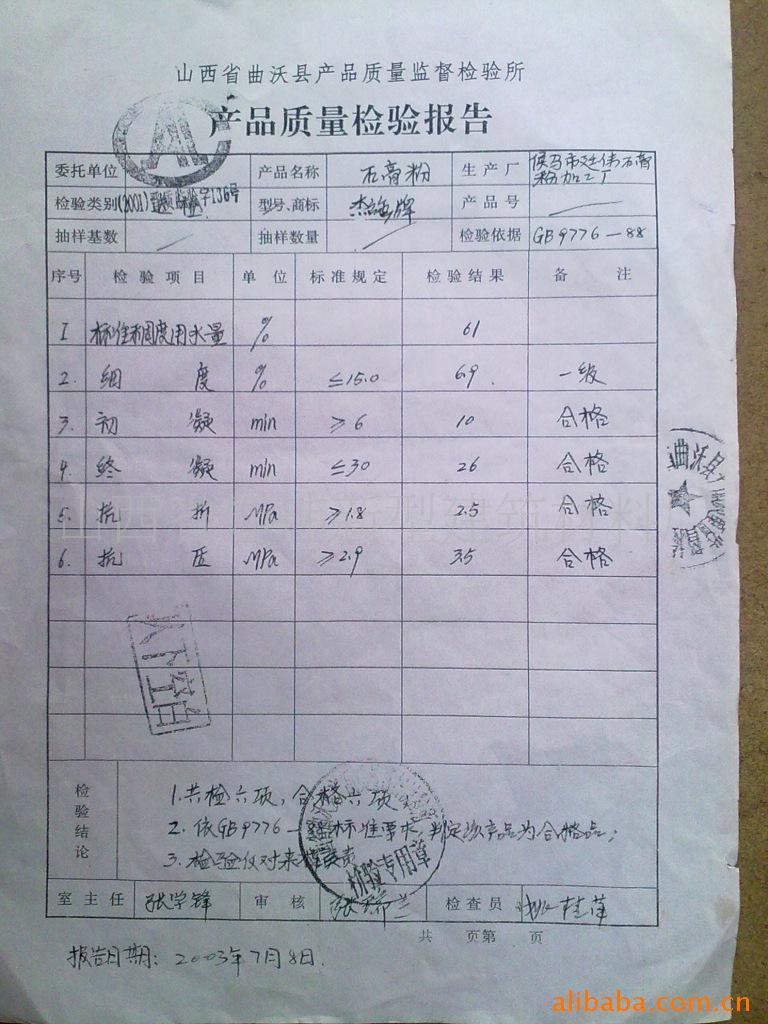 山西省曲沃县产品质量监督检验所
产品质量检验报告
委托单位 产品名称 石膏粉 生产厂 侯马市廷伟石膏粉加工厂
检验类别 (2001) 字136号 型号、商标 杰雄牌 产品号
抽样基数 抽样数量 检验依据 GB9776-88
序号 检验项目 单位 标准规定 检验结果 备注
1 标准稠度用水量 % 61
2. 细度 % ≤15.0 6.9 一级
3. 初凝 min ≥6 10 合格
4. 终凝 min ≤30 26 合格
5. 抗折 MPa ≥1.8 2.5 合格
6. 抗压 MPa ≥2.9 3.5 合格
以下空白
检验结论
1. 共检六项，合格六项。
2. 依GB9776- 标准要求，判定该产品为合格品；
3. 检验仅对来样负责
检验专用章
曲沃县
室主任 张学锋 审核 张 兰 检查员 桂萍
共 页第 页
报告日期：2003年7月8日.
alibaba.com.cn